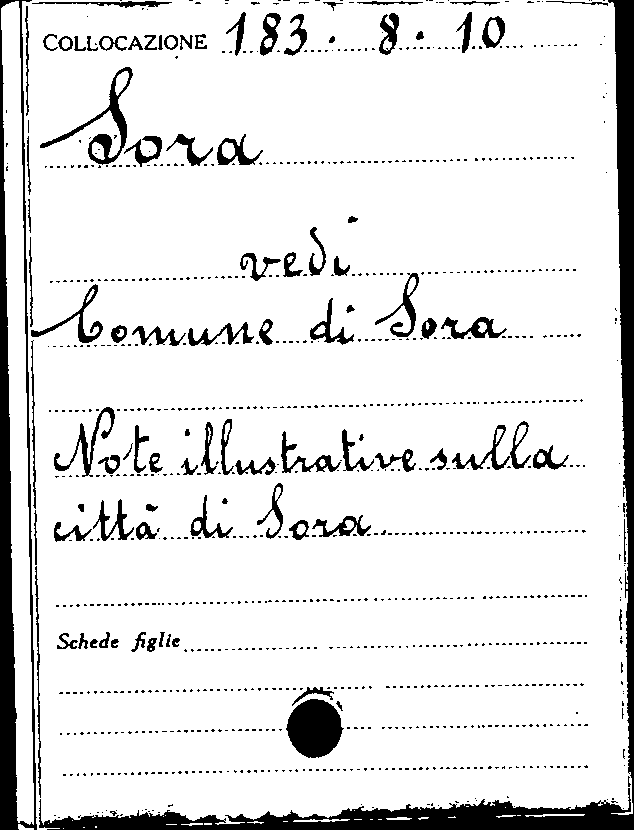 COLLOCAZIONE 183. 8. 10
Sora
vedi
Comune di Sora
Note illustrative sulla
città di Sora.
Schede figlie